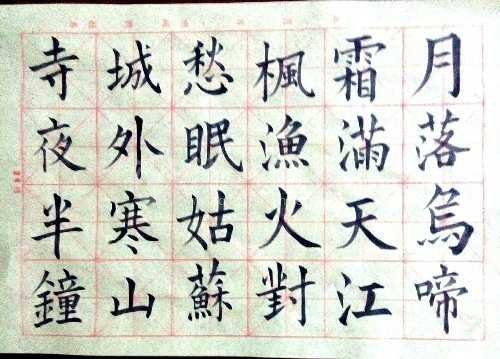 月落烏啼
霜滿天江
楓漁火對
愁眠姑蘇
城外寒山
寺夜半鐘